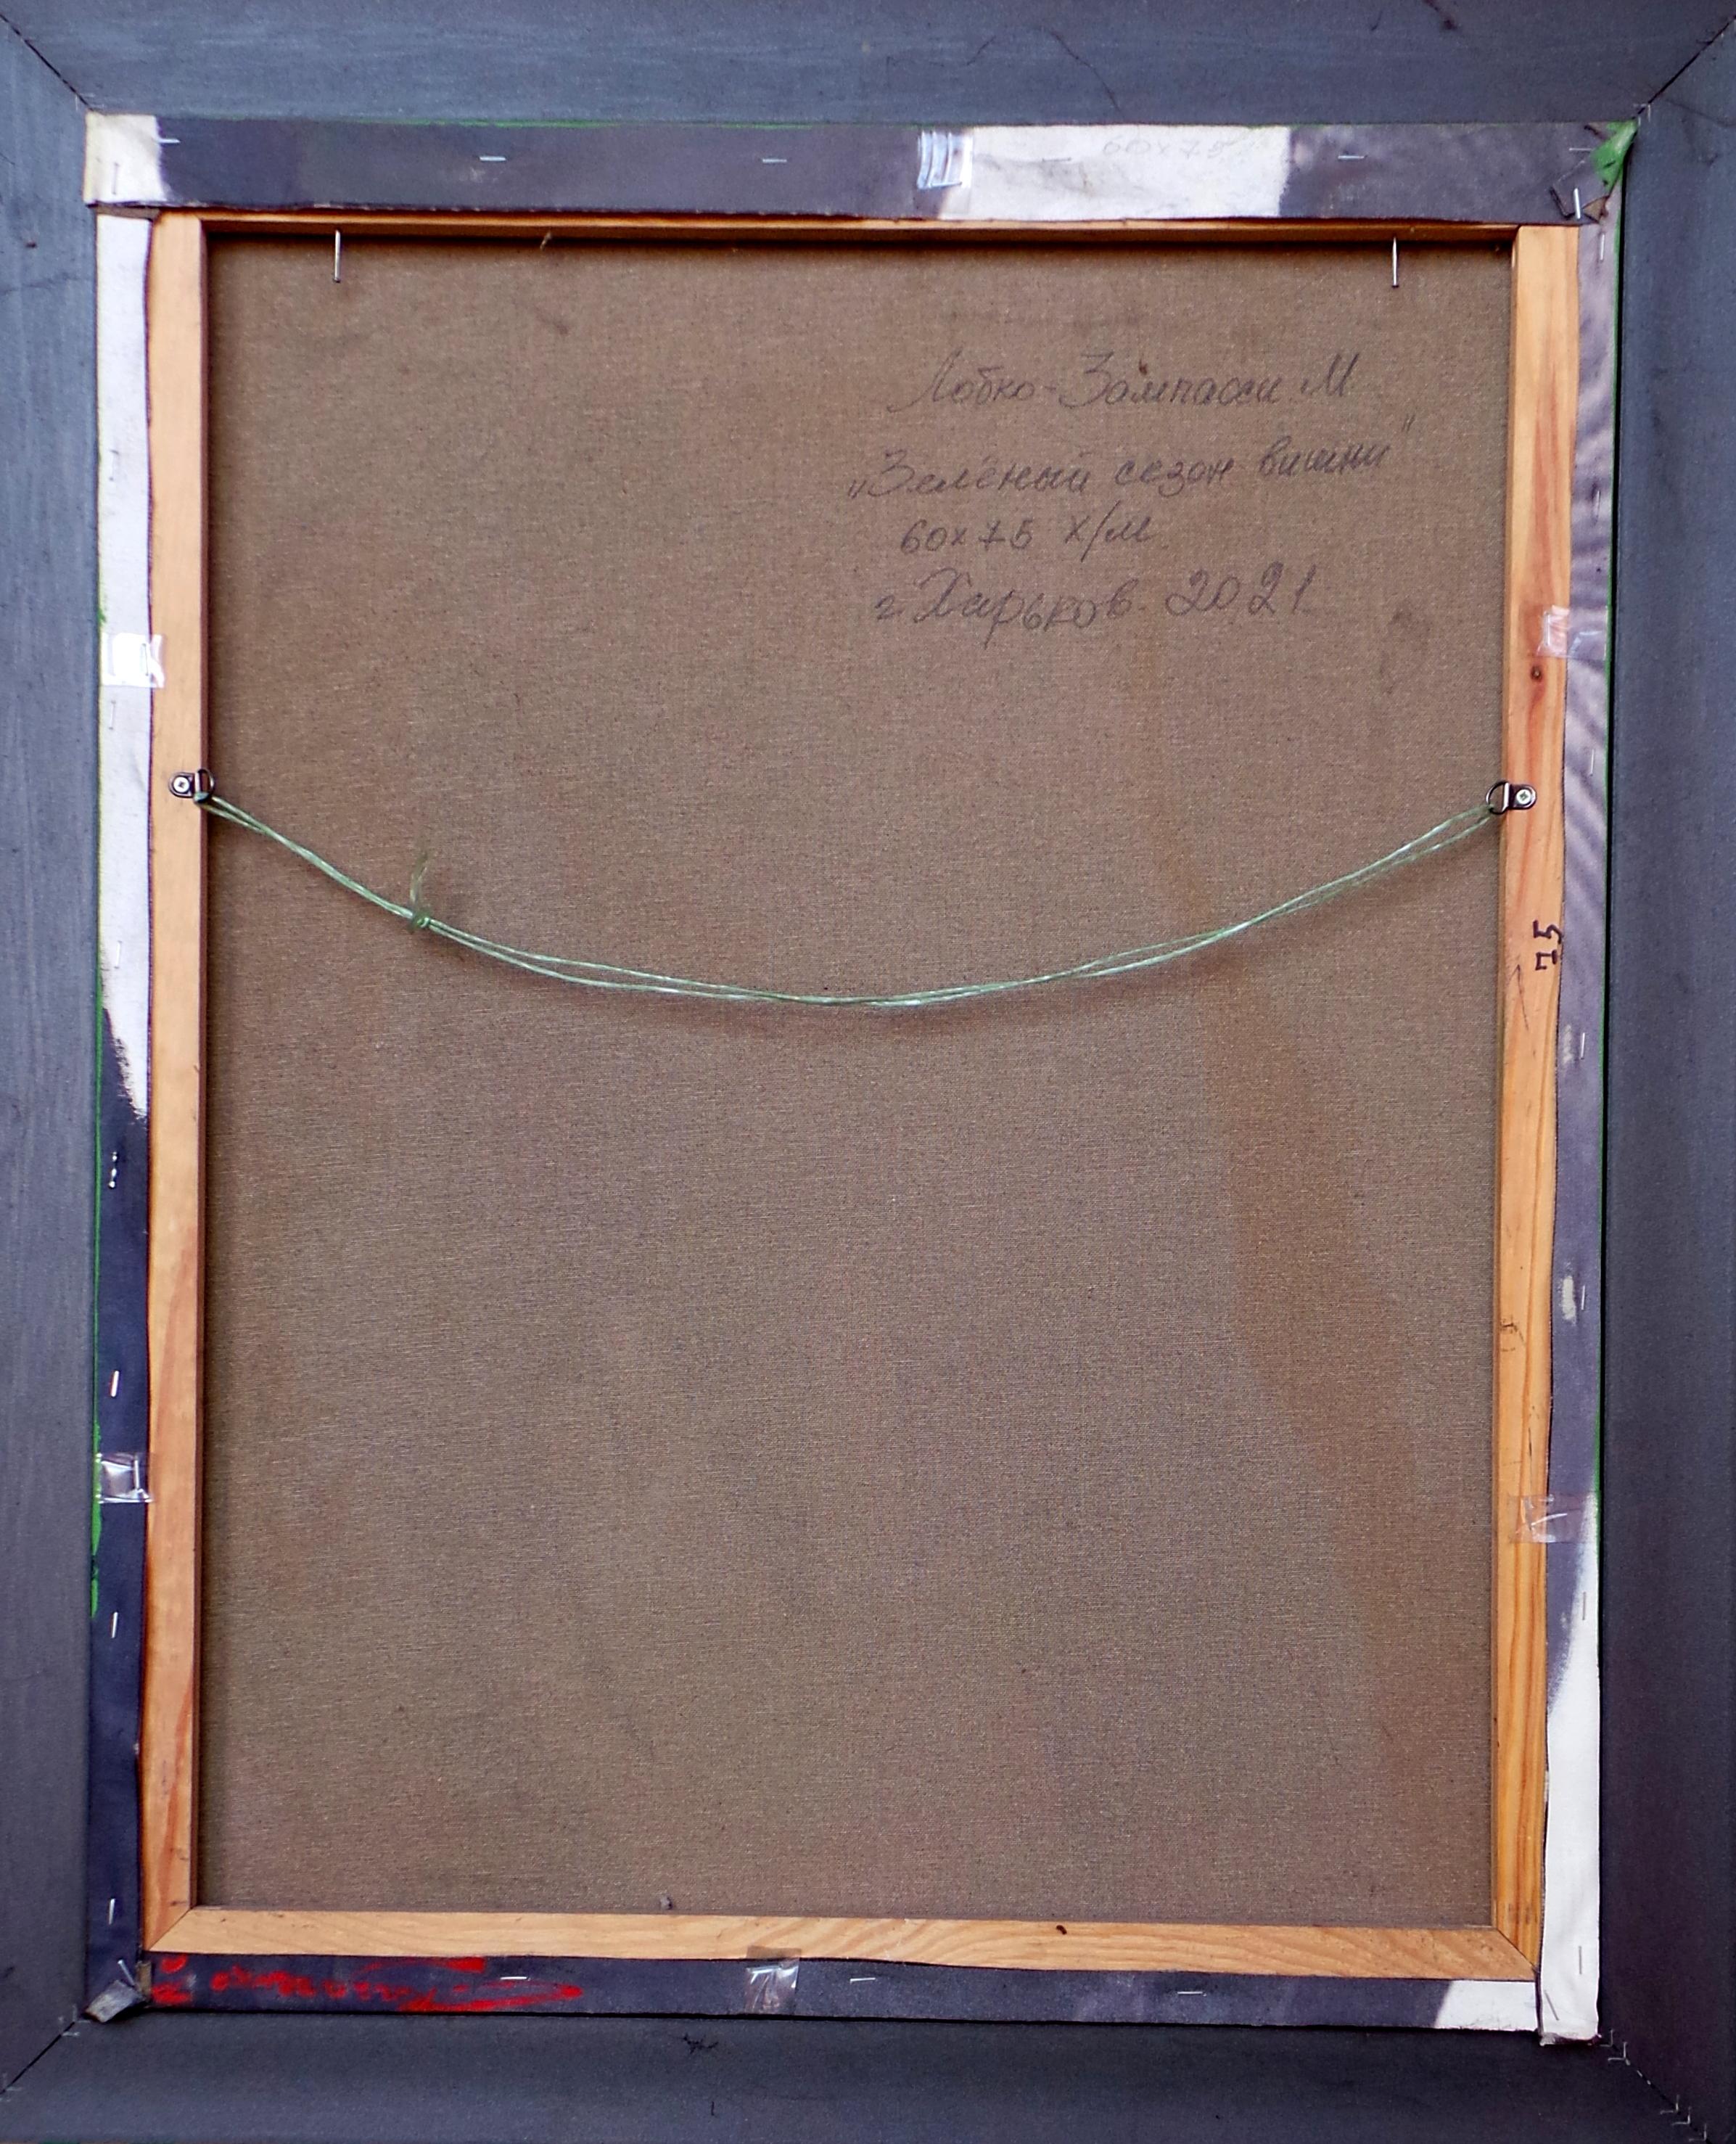 60x75
Лобко-Зампасси М
„Зелёный сезон вишни"
60x75 х/м
г. Харьков. 2021
75